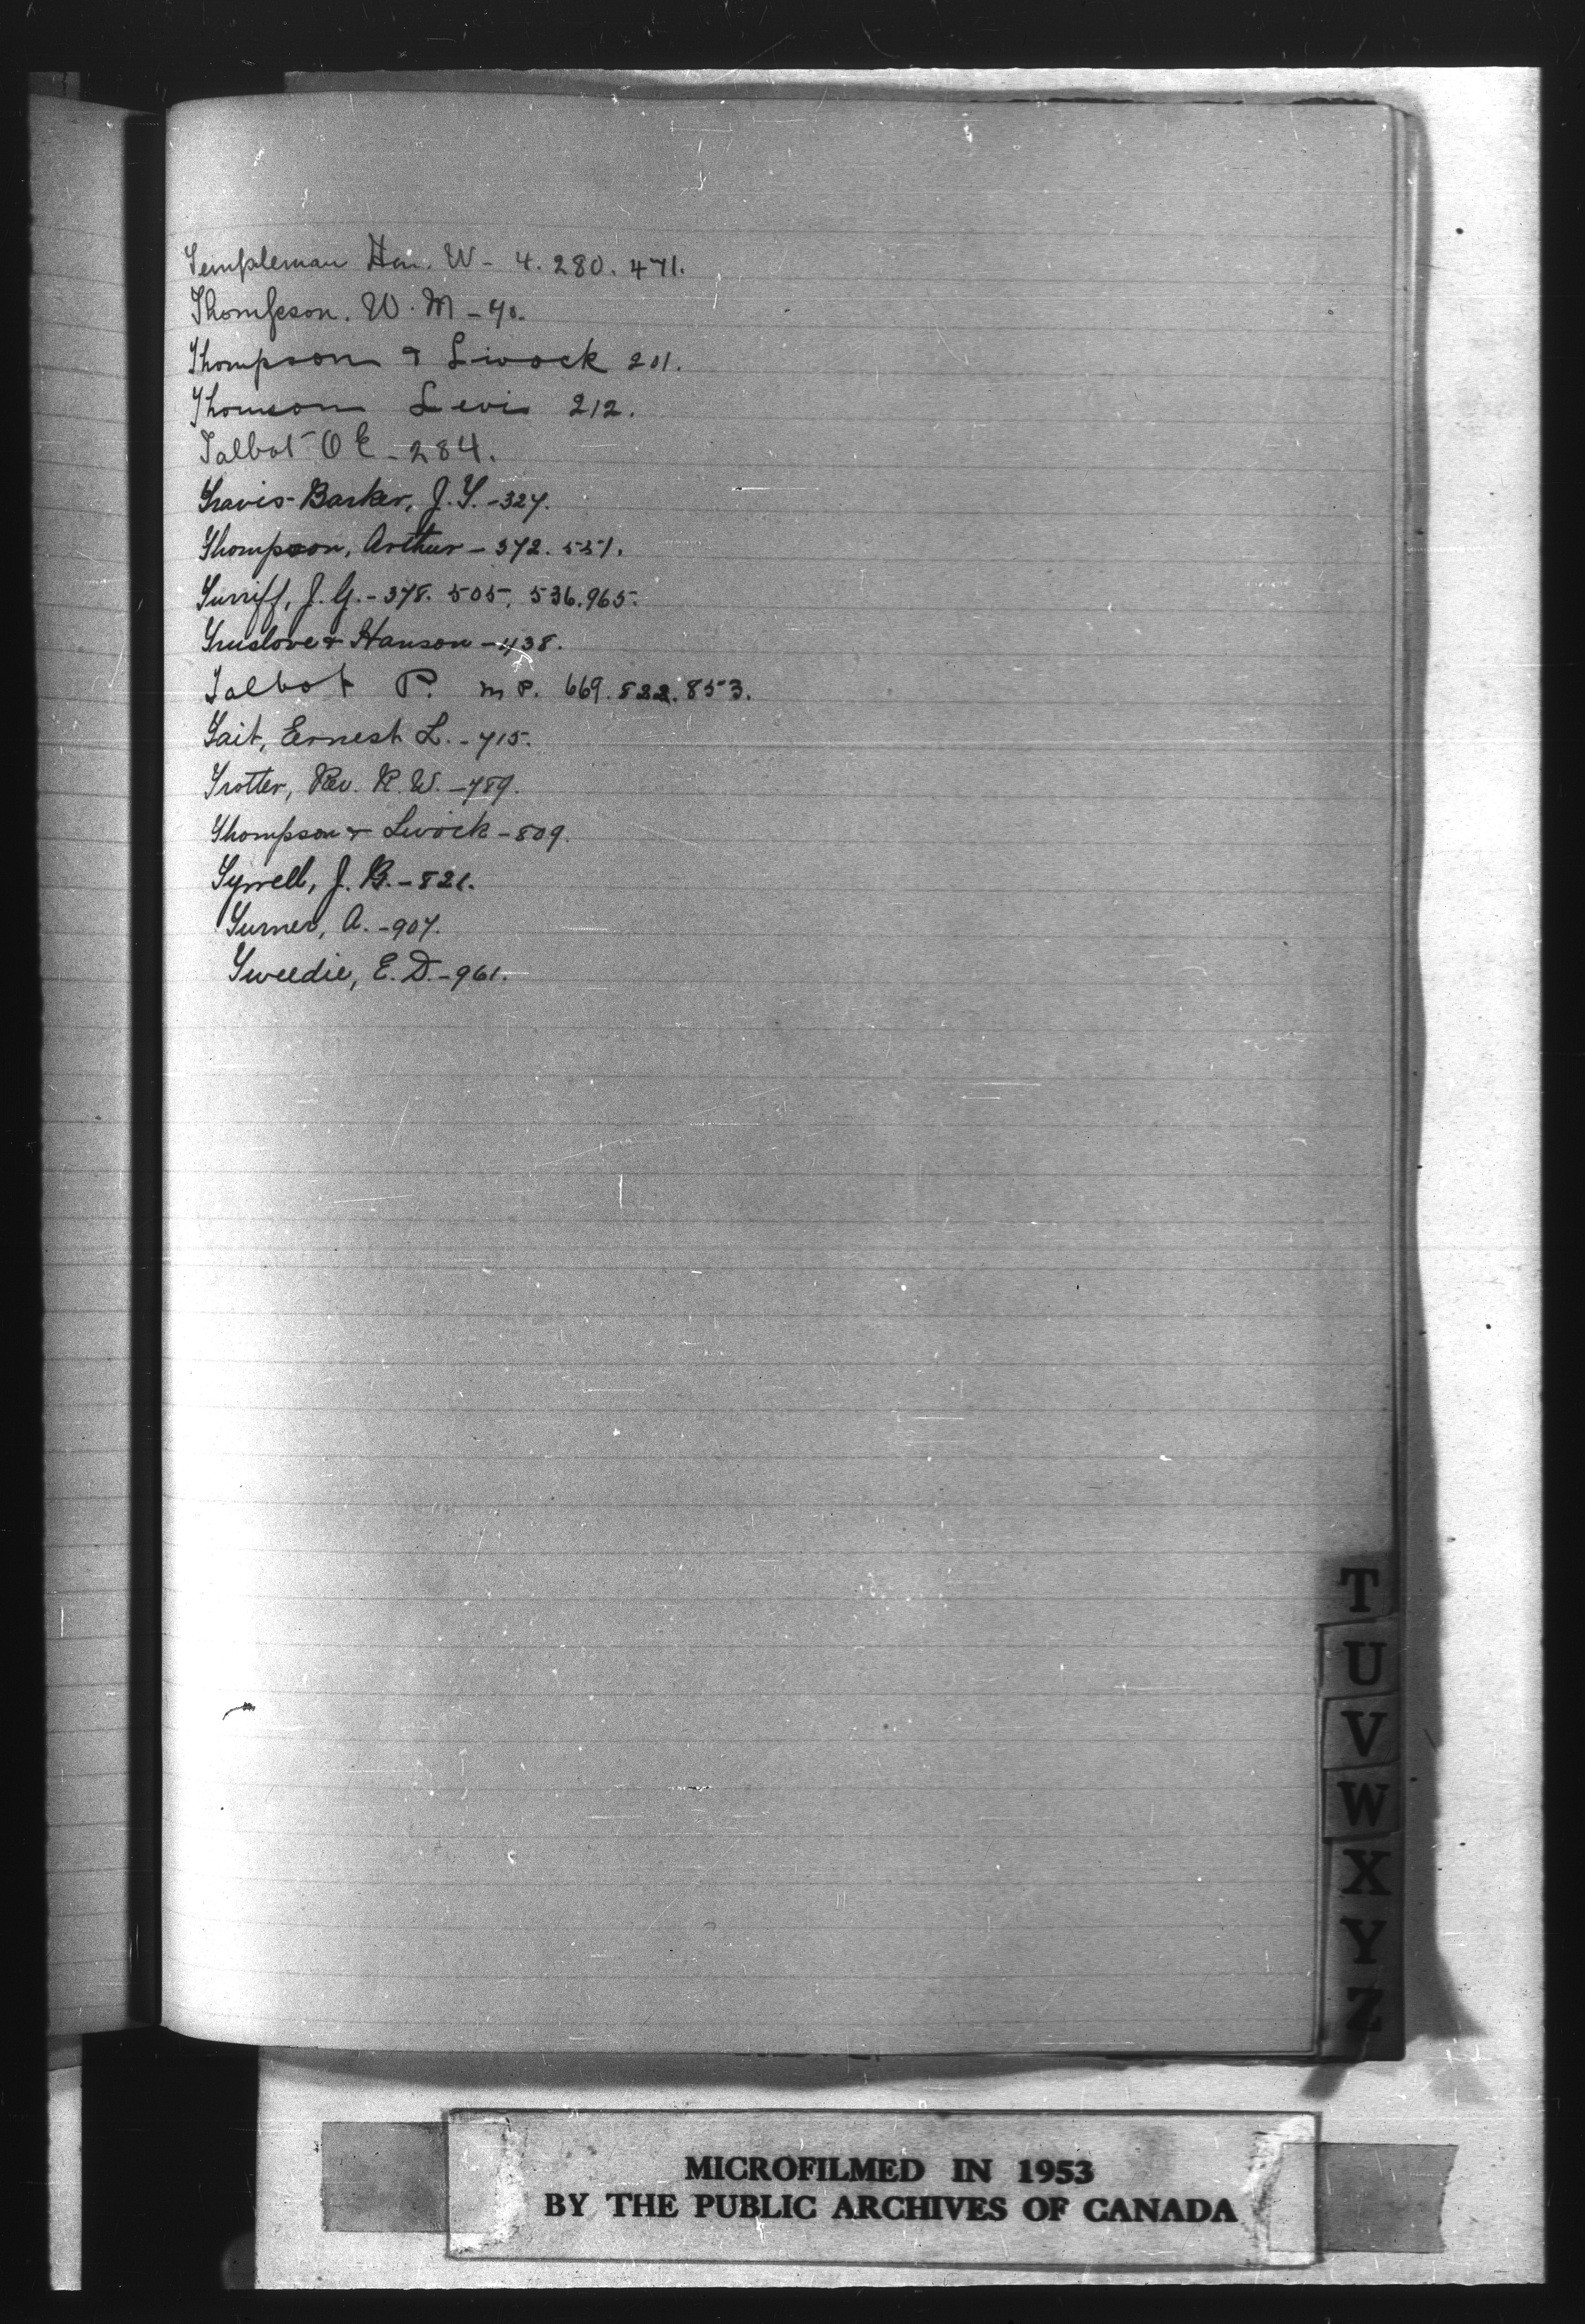 Templeman Hon. W - 4. 280. 471.
Thompson. W. M - 70.
Thompson & Livock 201.
Thomson Levi 212.
Talbot O E - 284.
Travis-Barker, J. T. - 327.
Thompson, Arthur - 372. 551.
Turriff, J. G. - 378. 505. 536. 965.
Truslove & Hanson - 438.
Talbot P. M P. 669. 822. 853.
Tait, Ernest L. - 715.
Trotter, Rev. R. W. - 789.
Thompson & Livock - 809.
Tyrrell, J. B. - 821.
Turner, A. - 907.
Tweedie, E. D. - 961.
T
U
V
W
X
Y
Z
MICROFILMED IN 1953
BY THE PUBLIC ARCHIVES OF CANADA